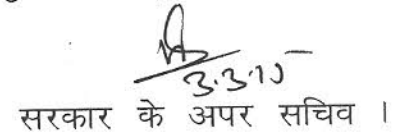 3.3.15
सरकार के अपर सचिव ।